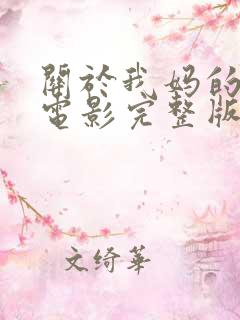 關於我妈的
電影完整版
文绮華